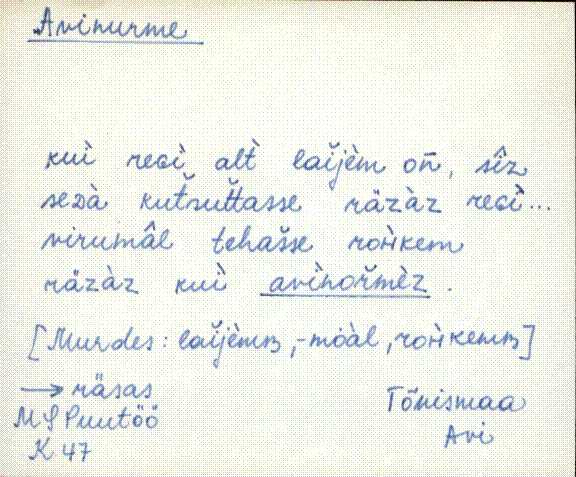 Avinurme
kuì reɢì alt̀ laĭjèm on̄, sîz
sedà kut̆sut̆t̆asse räzàz reɢì...
virumâl tehas̆se roh̀kem
räzàz kuì avìnor̆mèz.
[Murdes: laĭjèmʙ, -möàl, roh̀kemʙ]
→ räsas
MS Puutöö
K 47
Tõnismaa
Avi